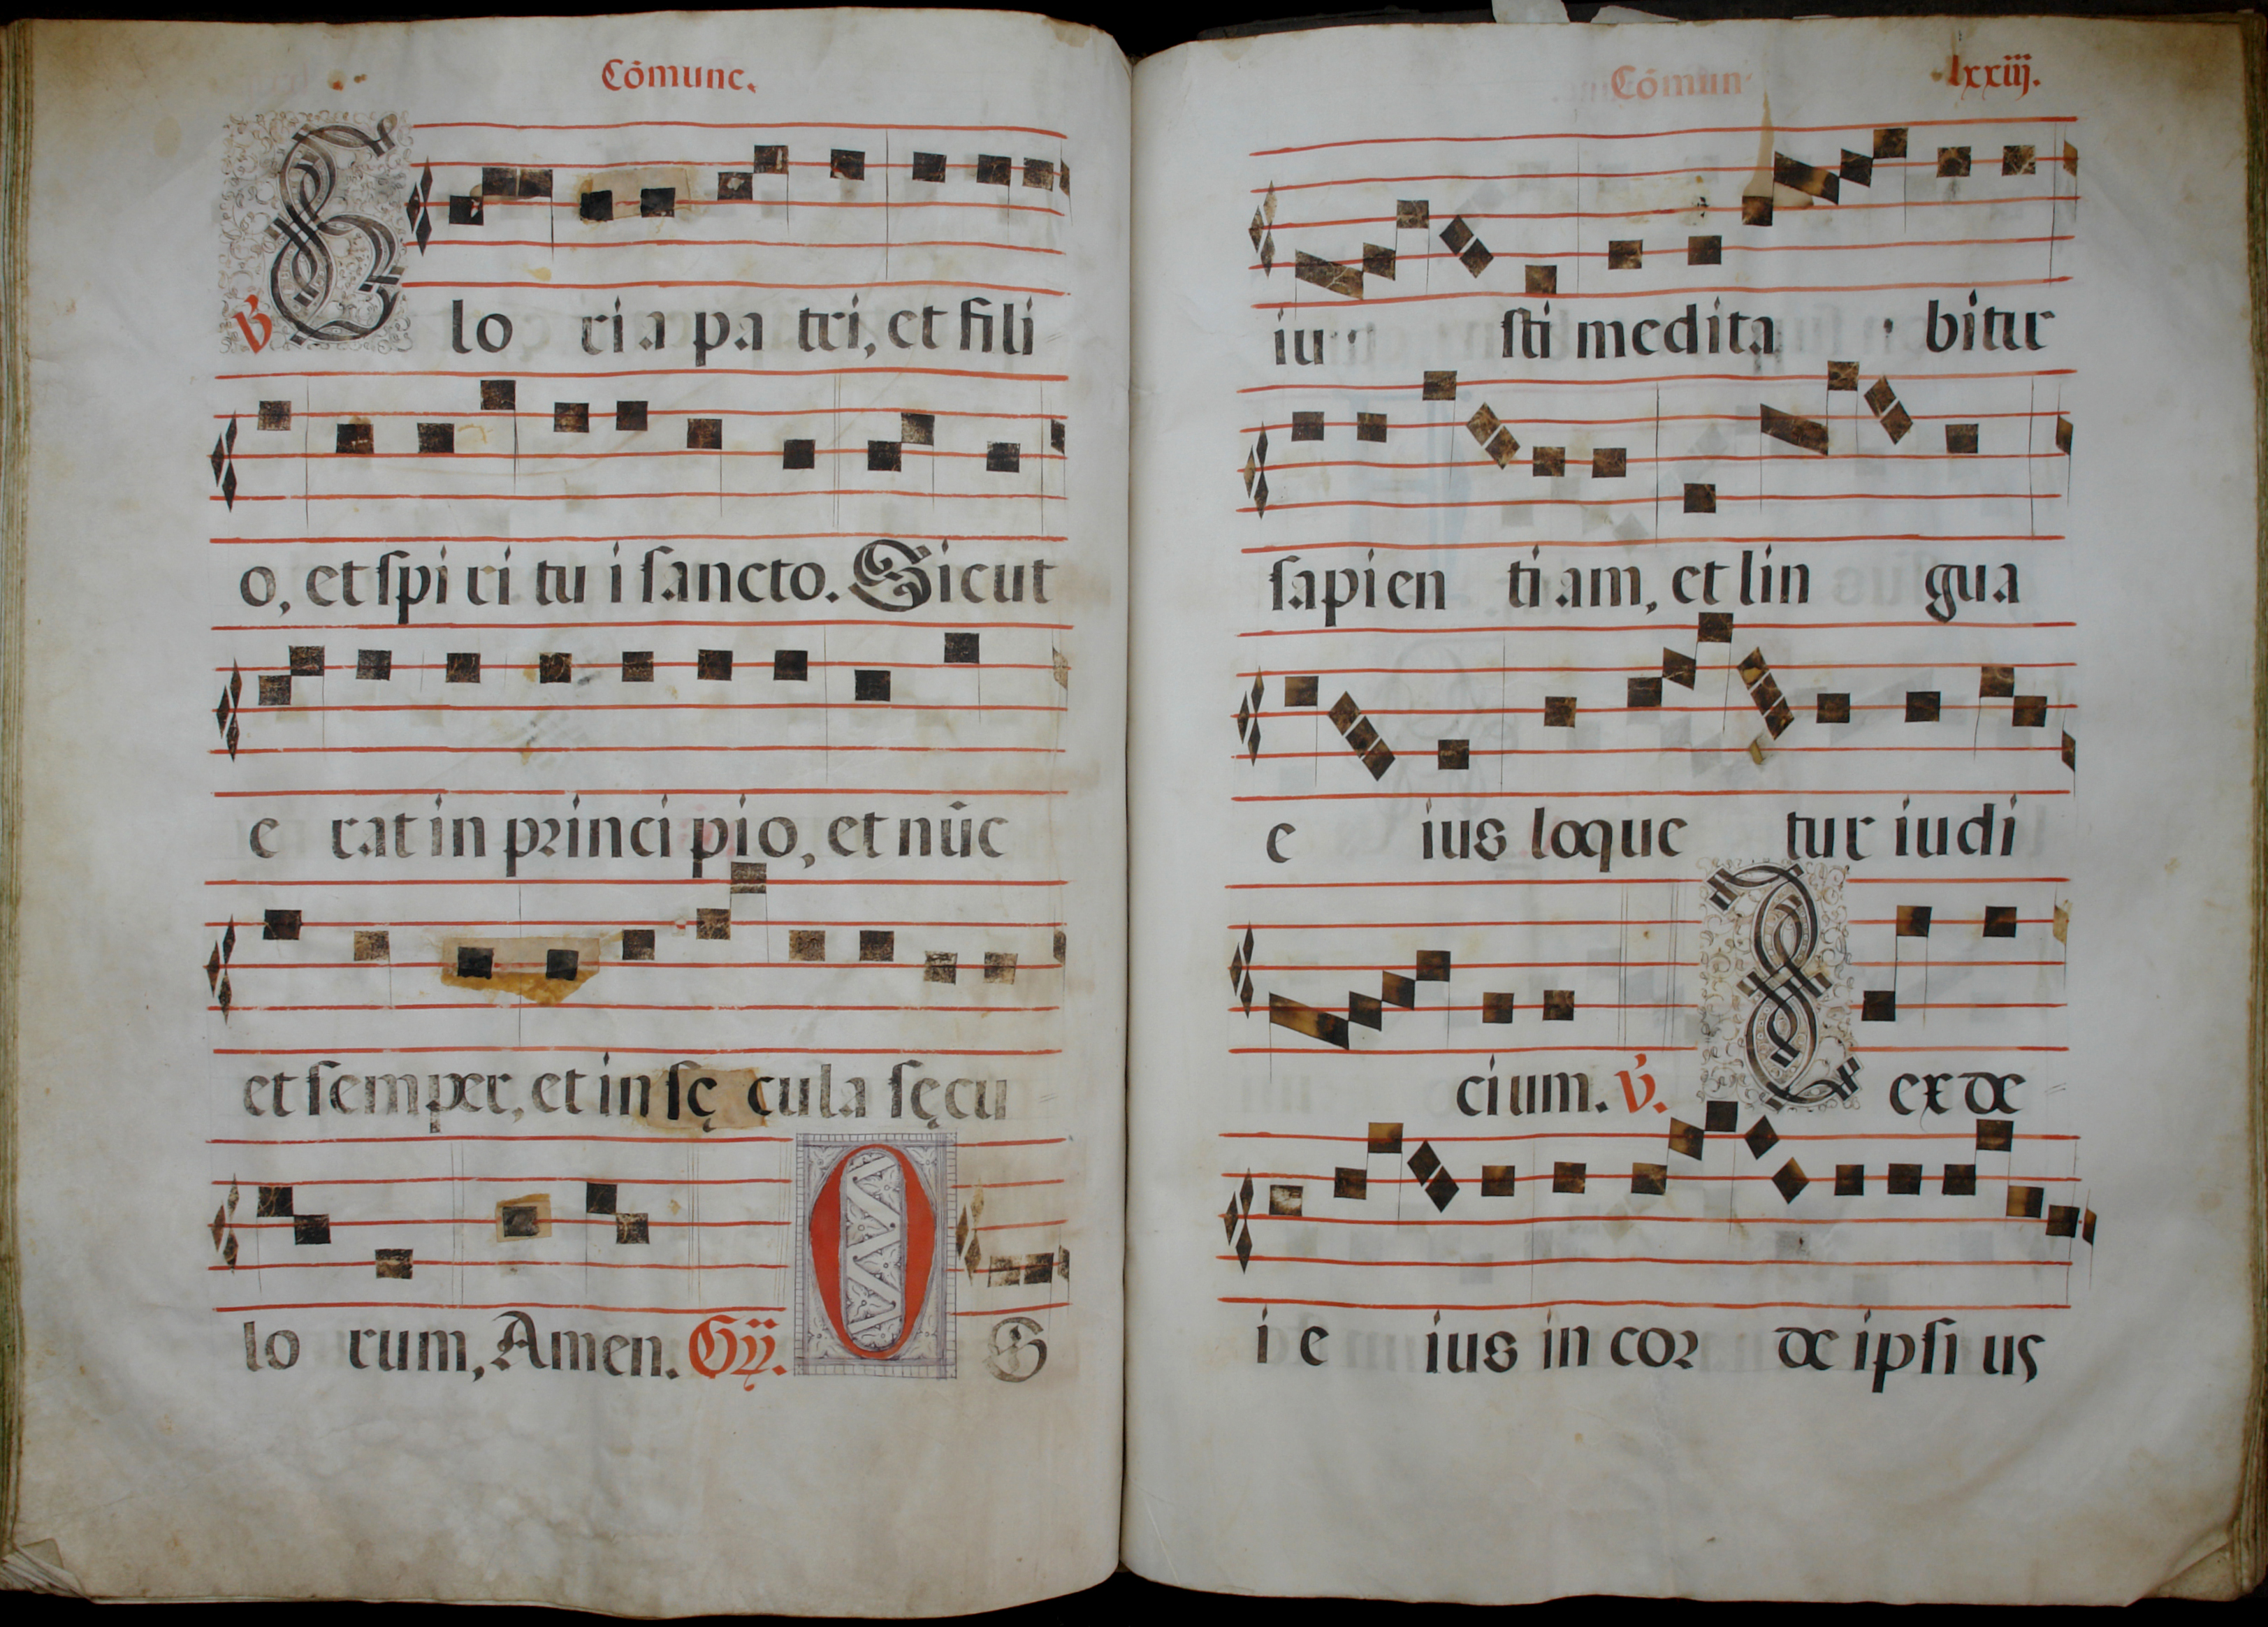 Cōmune.
℣ Gloria patri, et fili
o, et spiritui sancto. Sicut
erat in principio, et nūc
et semper, et in sęcula sęcu
lorum, Amen. Gỹ. OS
Cōmun
lxxiij.
iusti meditabitur
sapientiam, et lingua
eius loquetur iudi
cium. ℣. Lex de
i eius in corde ipsius